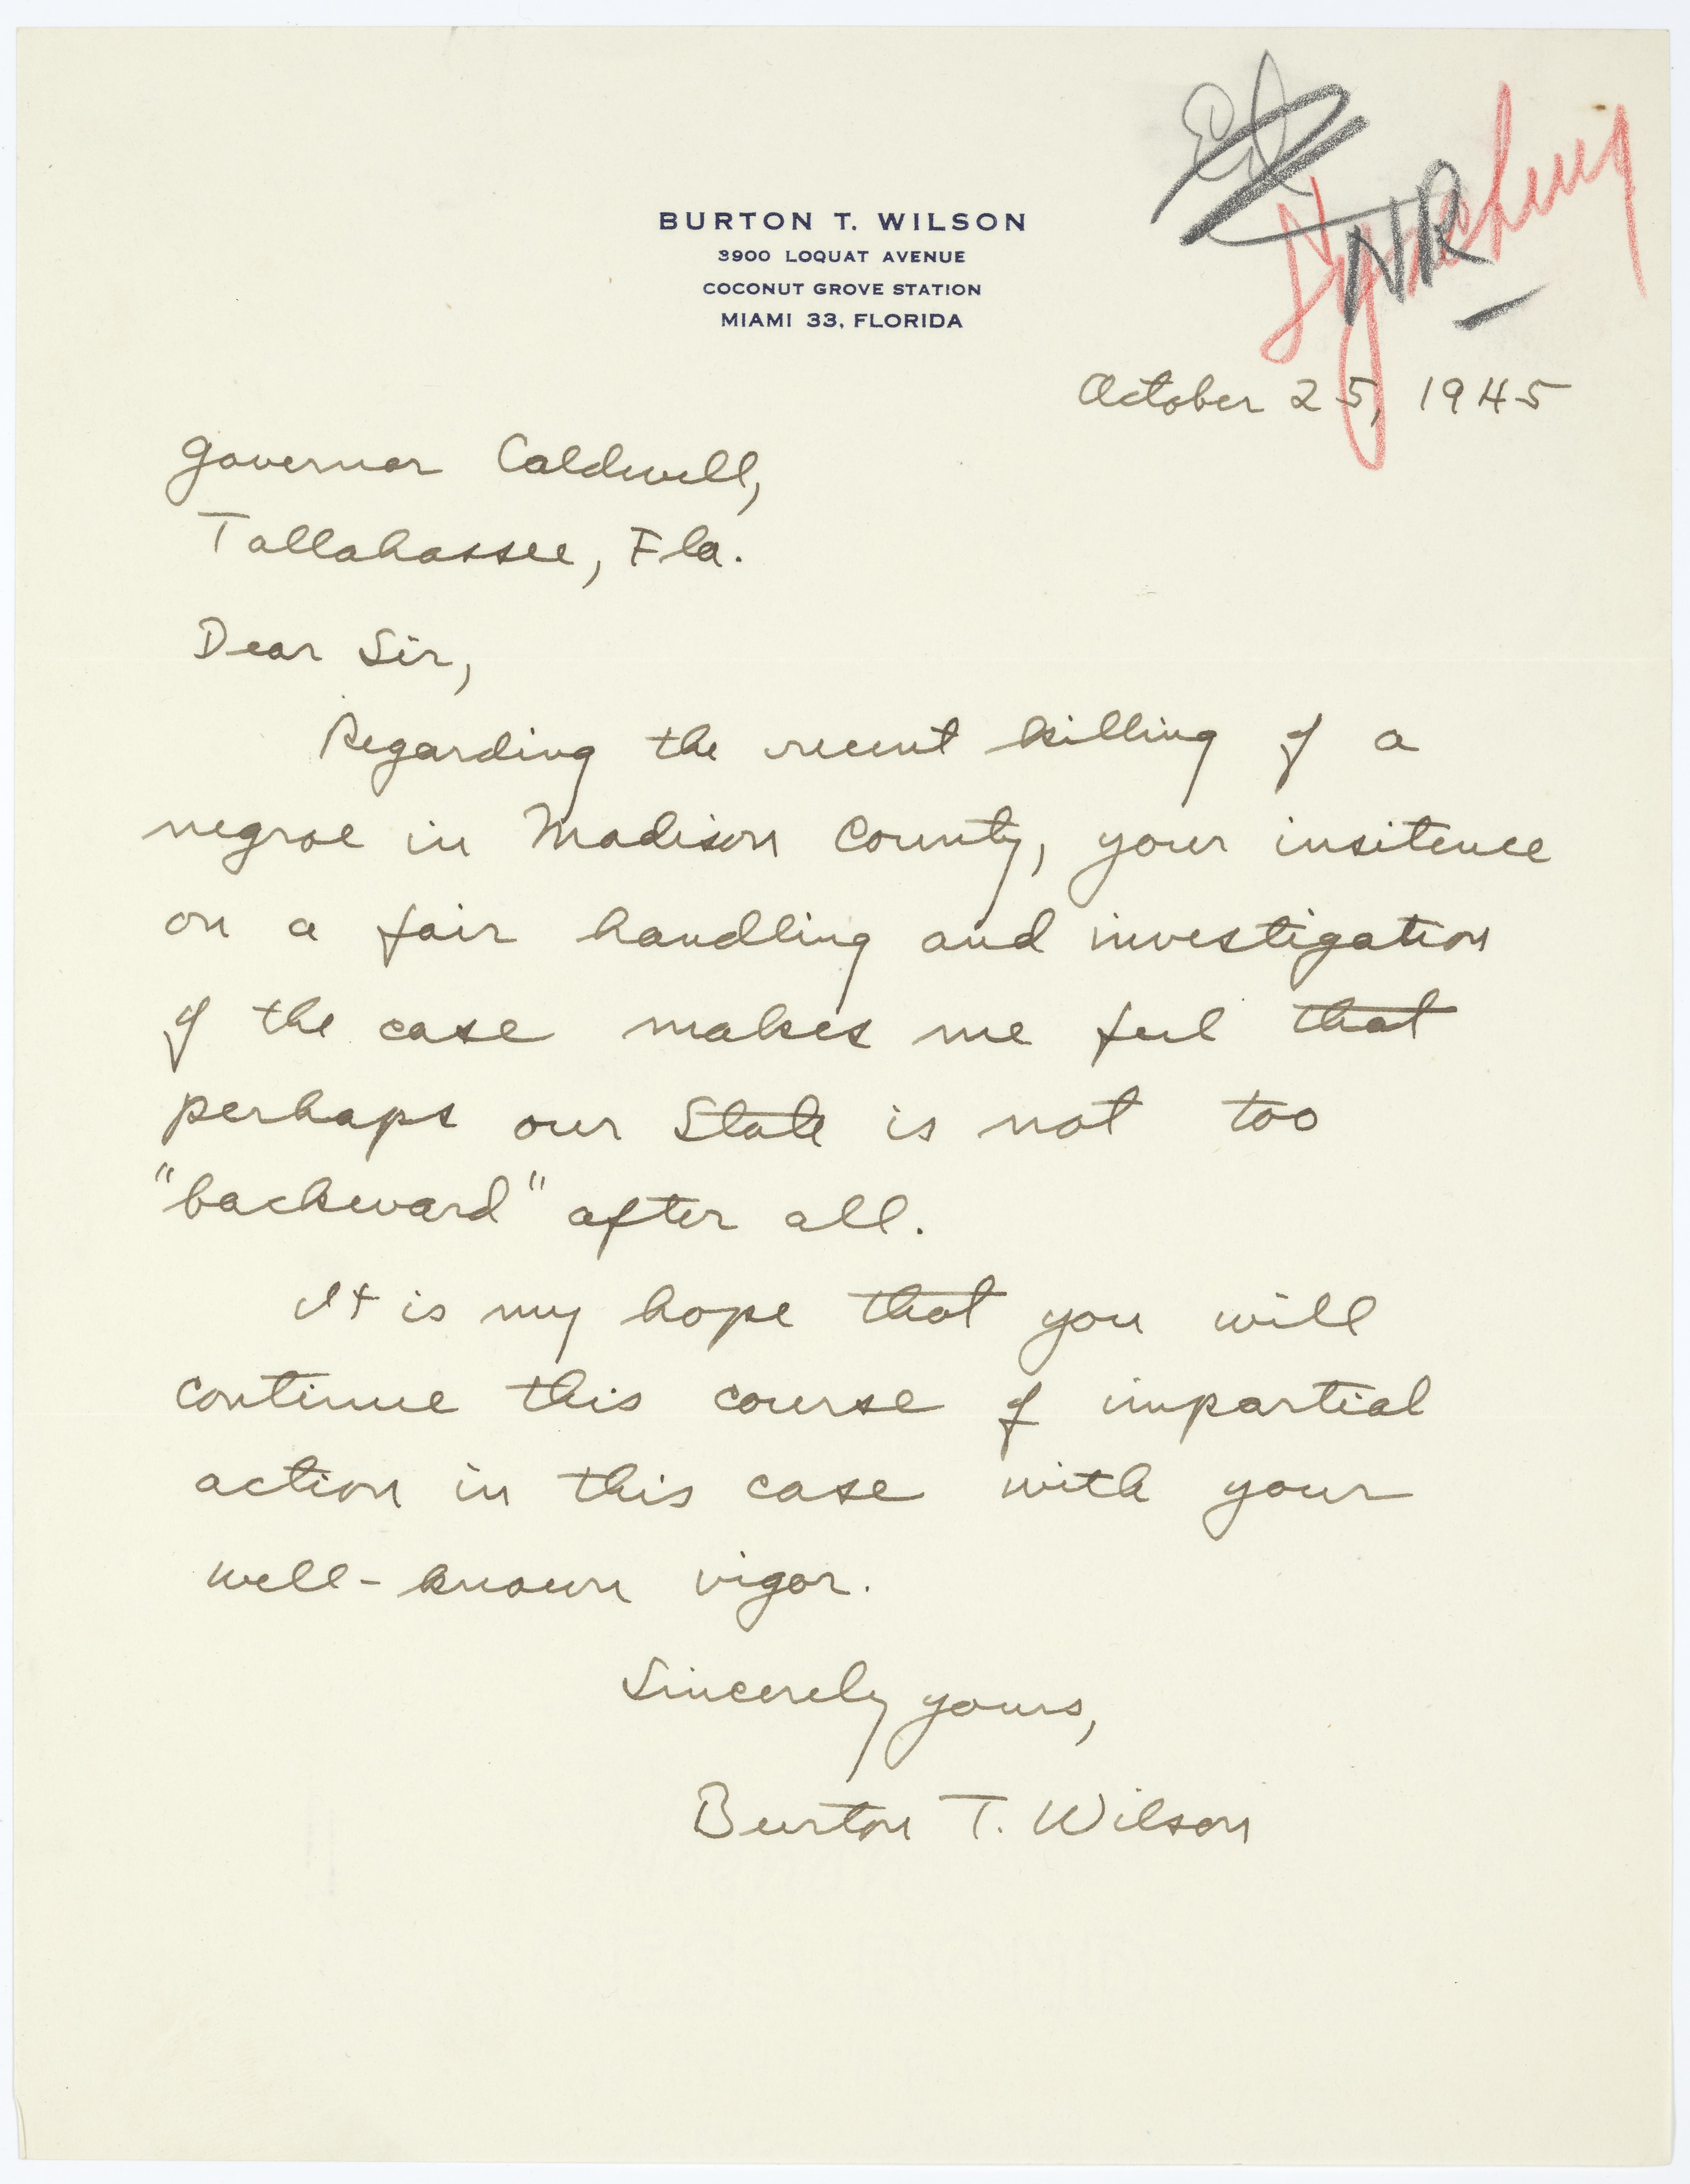 BURTON T. WILSON
3900 LOQUAT AVENUE
COCONUT GROVE STATION
MIAMI 33, FLORIDA
Lynching
NR
October 25, 1945
Governor Caldwell,
Tallahassee, Fla.
Dear Sir,
Regarding the recent killing of a
negroe in Madison County, your insitence
on a fair handling and investigation
of the case makes me feel that
perhaps our State is not too
"backward" after all.
It is my hope that you will
continue this course of impartial
action in this case with your
well-known vigor.
Sincerely yours,
Burton T. Wilson